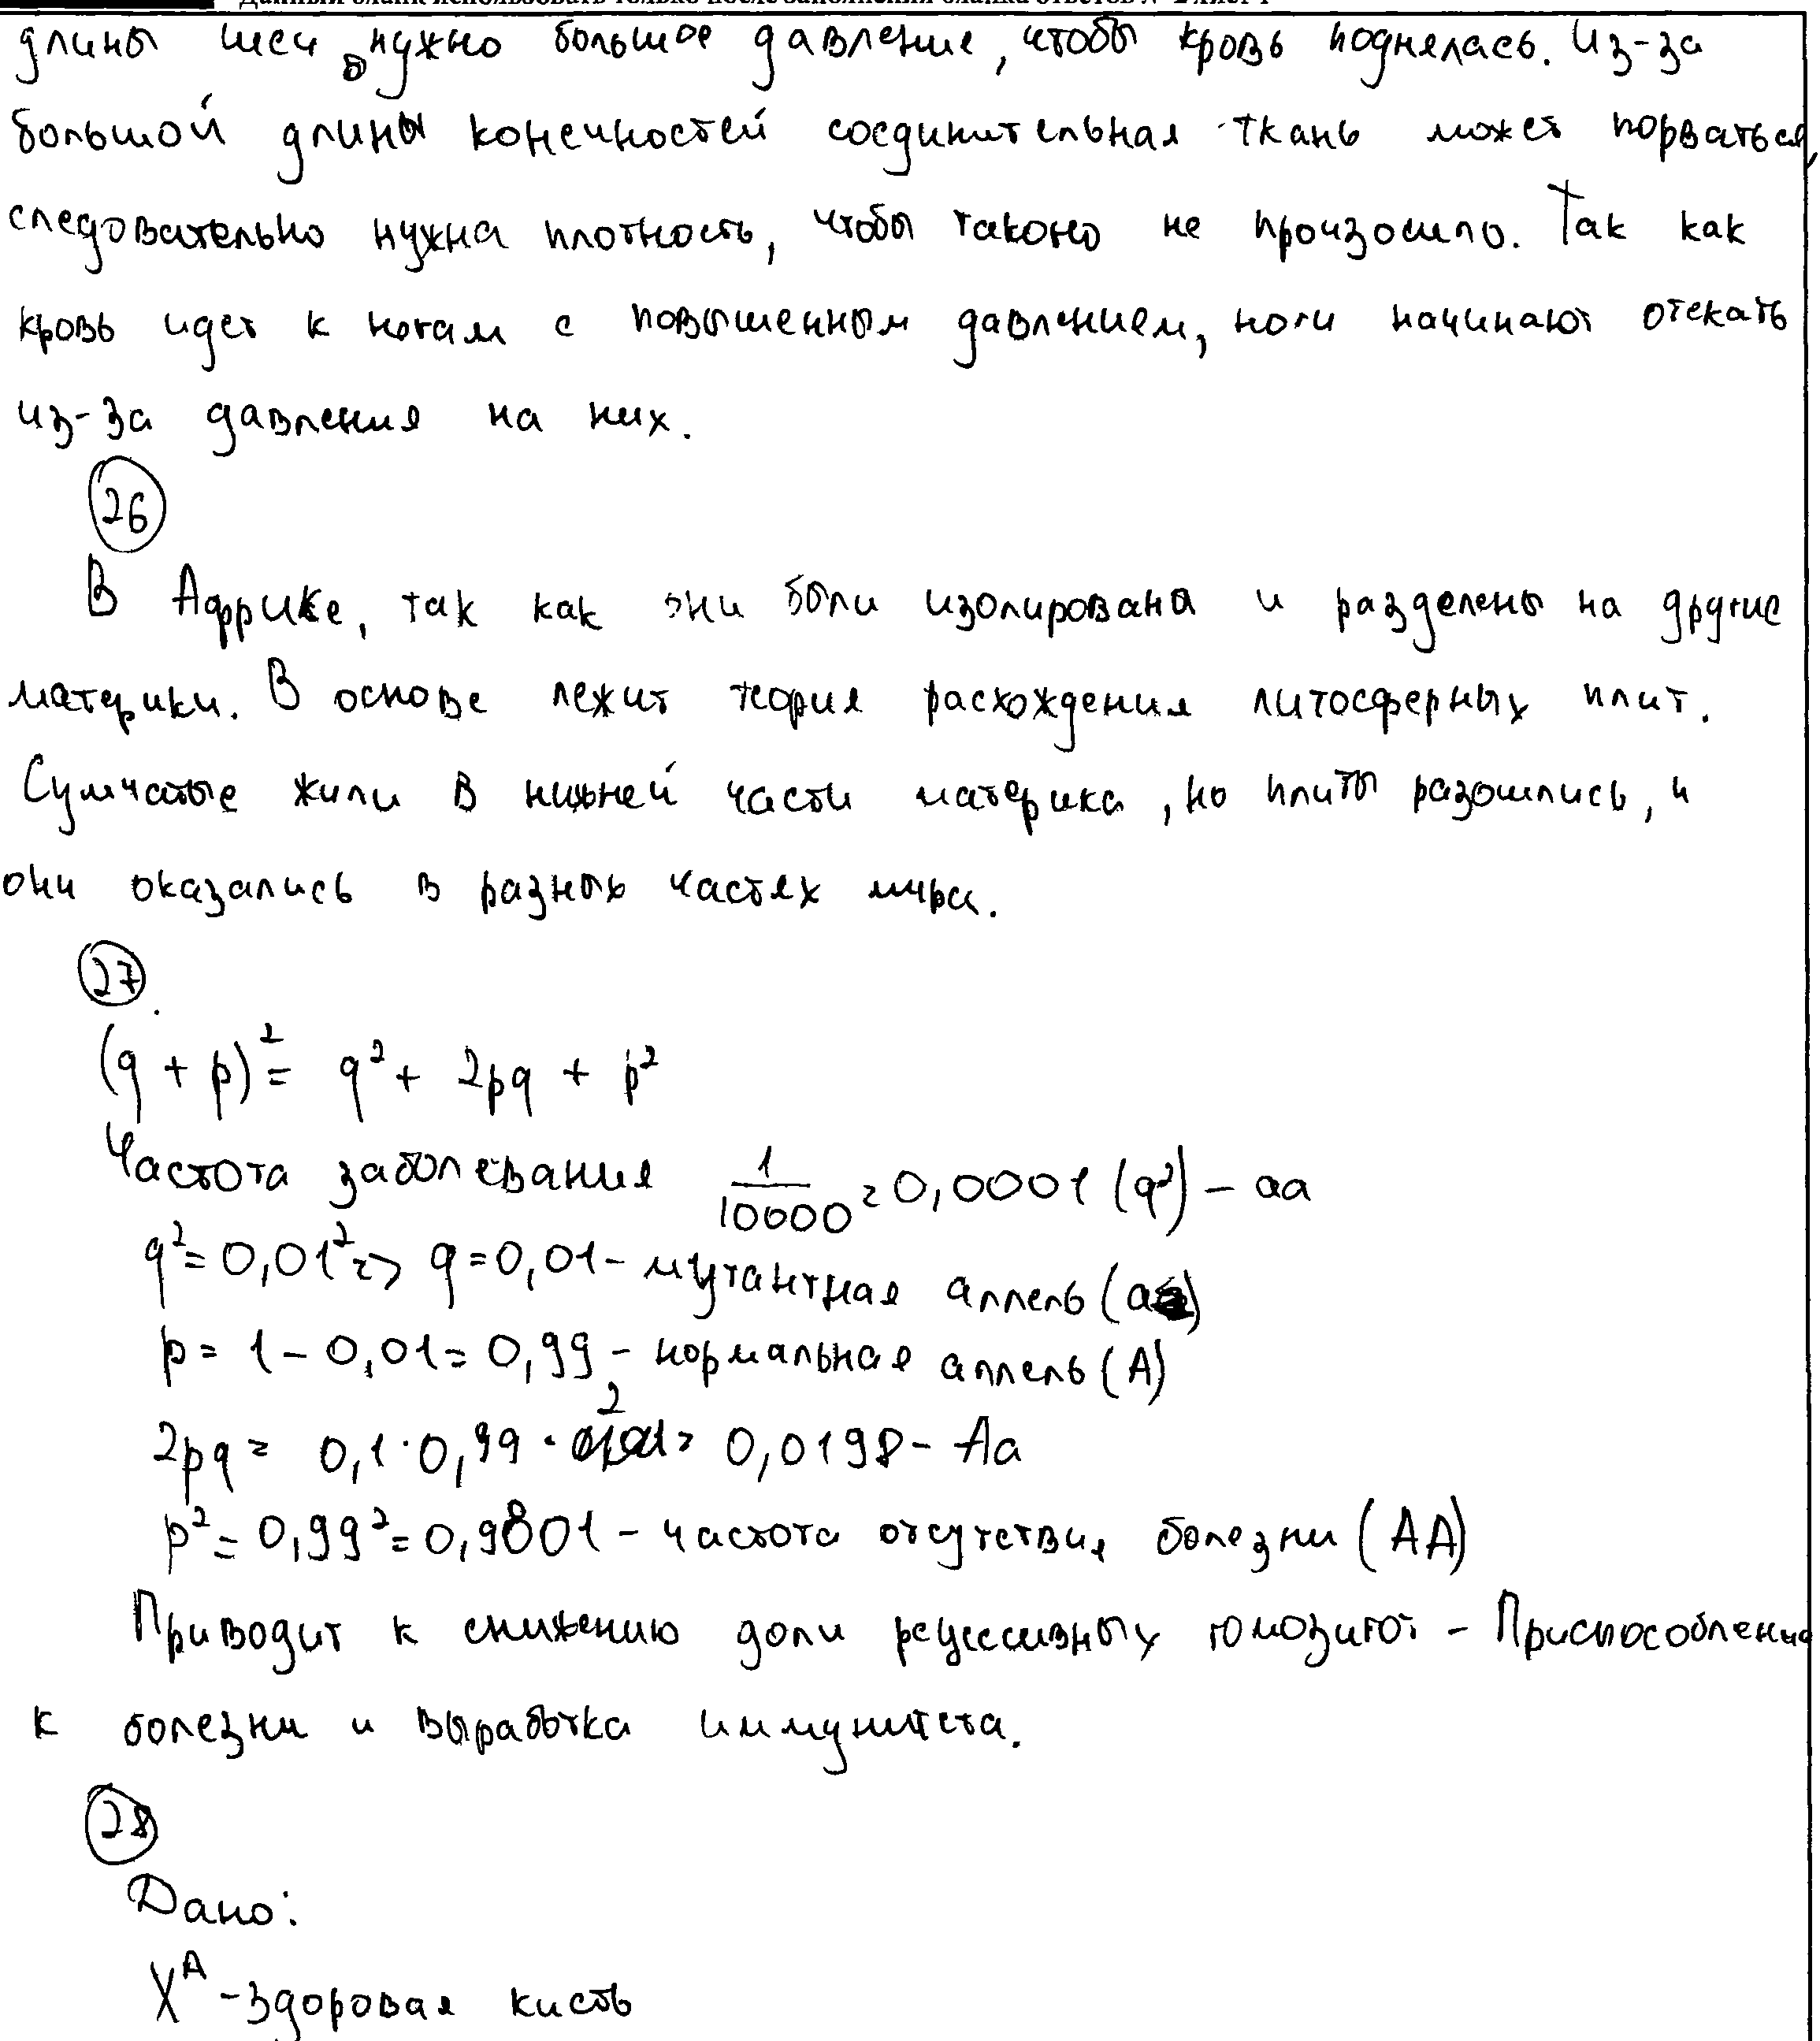 длины шеи нужно большое давление, чтобы кровь поднялась. Из-за
большой длины конечностей соединительная ткань может порваться,
следовательно нужна плотность, чтобы такого не произошло. Так как
кровь идет к ногам с повышенным давлением, ноги начинают отекать
из-за давления на них.
26
В Африке, так как они были изолирована и разделены на другие
материки. В основе лежит теория расхождения литосферных плит.
Сумчатые жили в нижней части материка, но плиты разошлись, и
они оказались в разных частях мира.
27.
(q + p)² = q² + 2pq + p²
Частота заболевания 1/10000 = 0,0001 (q²) - aa
q² = 0,01² => q = 0,01 - мутантная аллель (a)
p = 1 - 0,01 = 0,99 - нормальная аллель (A)
2pq = 0,1 · 0,99 · 2 = 0,0198 - Aa
p² = 0,99² = 0,9801 - частота отсутствия болезни (AA)
Приводит к снижению доли рецессивных гомозигот - Приспособление
к болезни и выработка иммунитета.
28
Дано:
X^A - здоровая кисть